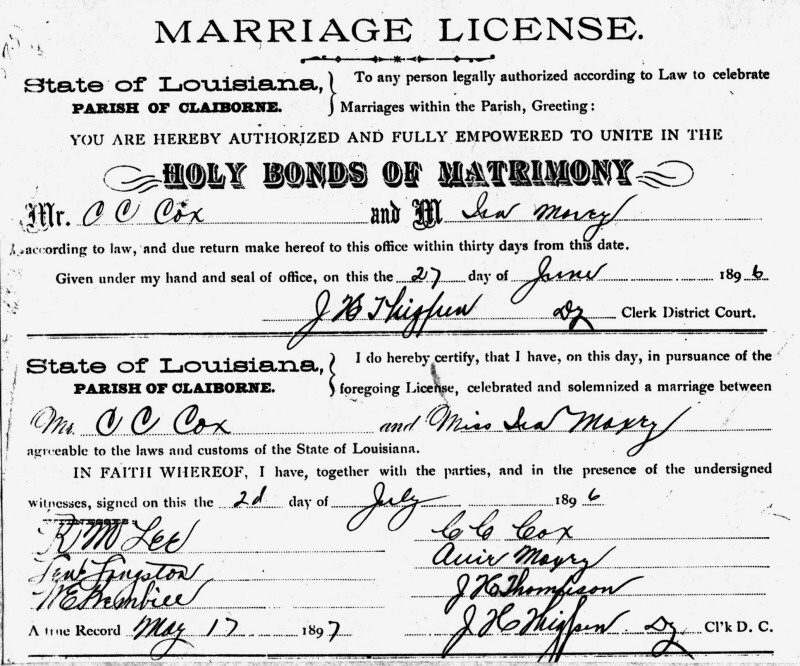 MARRIAGE LICENSE.
State of Louisiana,
PARISH OF CLAIBORNE.
To any person legally authorized according to Law to celebrate
Marriages within the Parish, Greeting:
YOU ARE HEREBY AUTHORIZED AND FULLY EMPOWERED TO UNITE IN THE
HOLY BONDS OF MATRIMONY
Mr. C C Cox and M
according to law, and due return make hereof to this office within thirty days from this date.
Given under my hand and seal of office, on this the 27 day of June 1896
J H Thigpen Dy Clerk District Court.
State of Louisiana,
PARISH OF CLAIBORNE.
I do hereby certify, that I have, on this day, in pursuance of the
foregoing License, celebrated and solemnized a marriage between
Mr. C C Cox and Miss
agreeable to the laws and customs of the State of Louisiana.
IN FAITH WHEREOF, I have, together with the parties, and in the presence of the undersigned
witnesses, signed on this the 2d day of July 1896
R M Lee
C C Cox
Langston
J H Thompson
A true Record May 17 1897
J H Thigpen Dy Cl'k D. C.